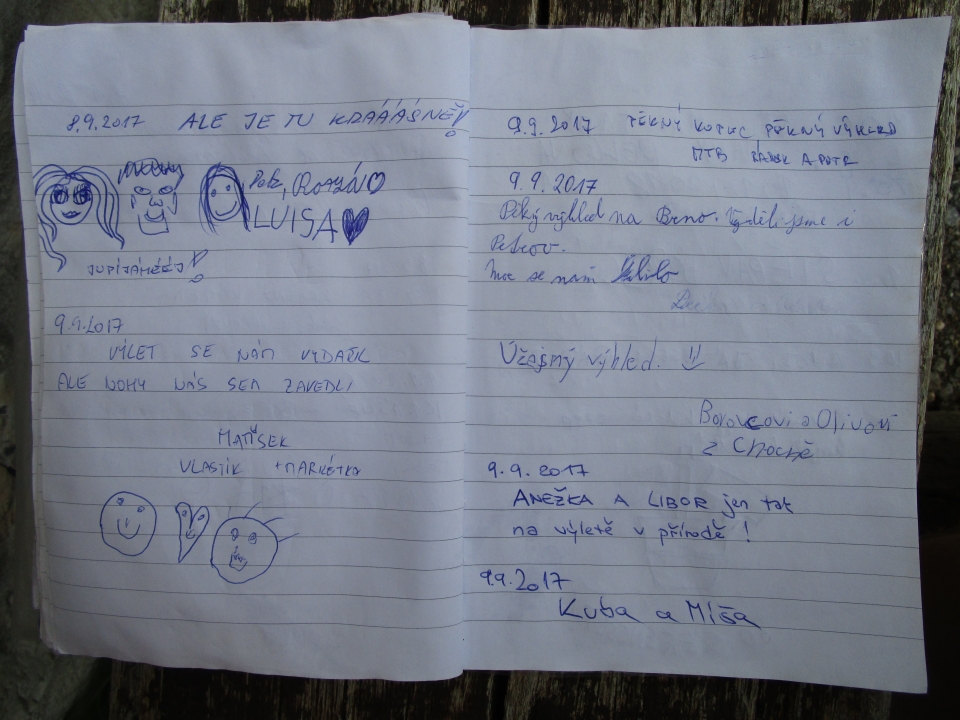 8.9.2017 ALE JE TU KRÁÁÁSNĚ!
LUISA
JUPÍJÁHÉÉJ!
9.9.2017
VÝLET SE NÁM VYDAŘIL
ALE NOHY NÁS SEM ZAVEDLI
MATÝSEK
VLASTÍK + MARKÉTKA
9.9.2017 PĚKNÝ KOPEC, PĚKNÝ VÝHLED
MTB RADEK A PETR
9.9.2017
Pěký výhled na Brno. Viděli jsme i
Petrov.
Moc se nám líbilo
Úžasný výhled.
Borovcovi a Olivovi
z Chocně
9.9.2017
ANEŽKA A LIBOR jen tak
na výletě v přírodě!
9.9.2017
Kuba a Míša